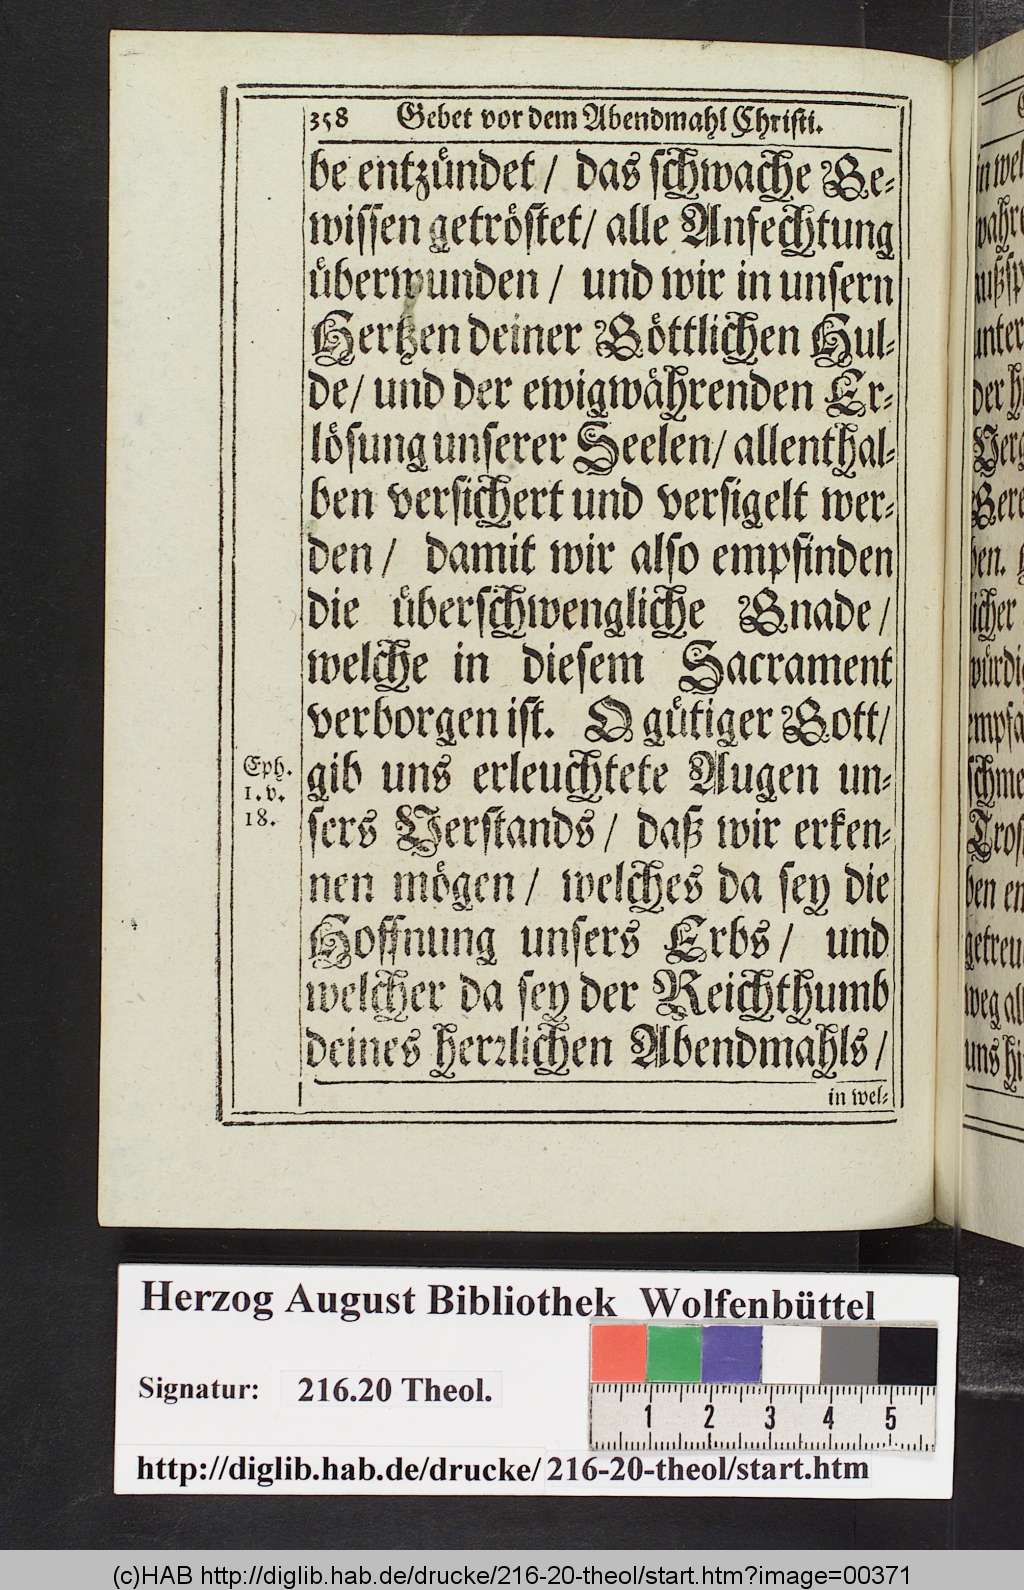 358 Gebet vor dem Abendmahl Christi.
be entzündet / das schwache Ge-
wissen getröstet / alle Anfechtung
überwunden / und wir in unsern
Hertzen deiner Göttlichen Hul-
de / und der ewigwährenden Er-
lösung unserer Seelen / allenthal-
ben versichert und versigelt wer-
den / damit wir also empfinden
die überschwengliche Gnade /
welche in diesem Sacrament
verborgen ist. O gütiger Gott /
gib uns erleuchtete Augen un-
sers Verstands / daß wir erken-
nen mögen / welches da sey die
Hoffnung unsers Erbs / und
welcher da sey der Reichthumb
deines herrlichen Abendmahls /
in wel-
Eph.
1. v.
18.
in wel
wahre
außsp
unter
der h
Verg
Gere
ben.
licher
würdi
empfa
schme
Tros
ben en
getreu
weg al
uns hi
Herzog August Bibliothek Wolfenbüttel
Signatur: 216.20 Theol.
1 2 3 4 5
http://diglib.hab.de/drucke/216-20-theol/start.htm
(c)HAB http://diglib.hab.de/drucke/216-20-theol/start.htm?image=00371